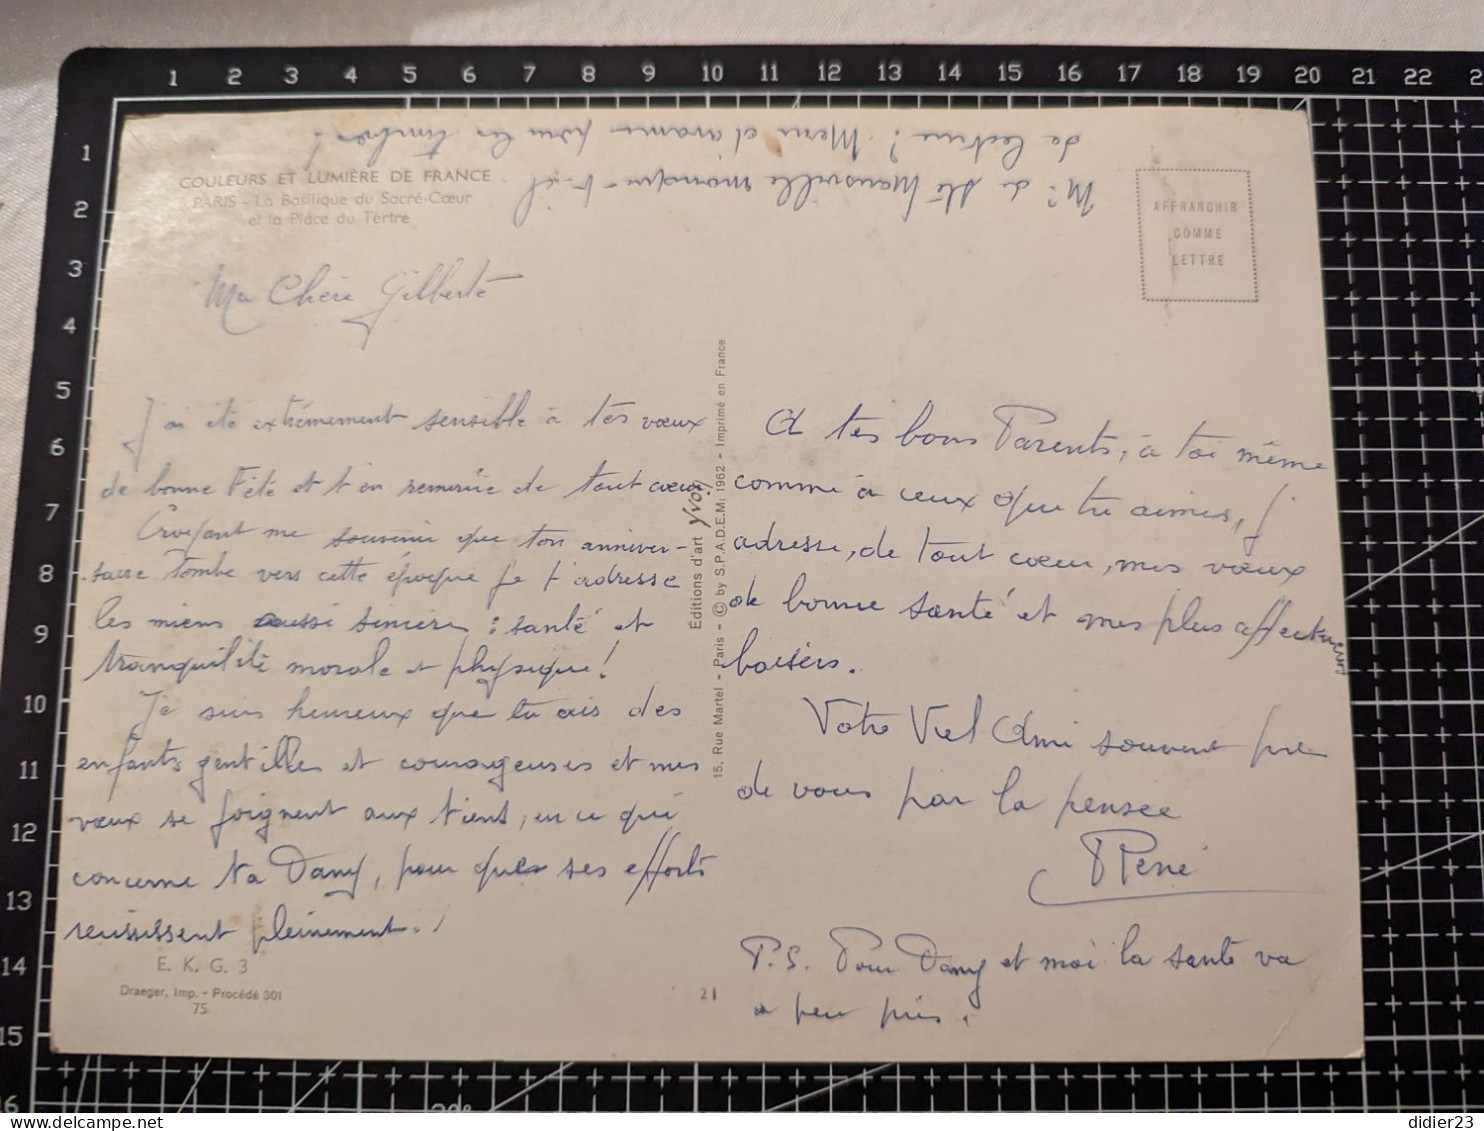 1 2 3 4 5 6 7 8 9 10 11 12 13 14 15 16 17 18 19 20 21 22 2
1
2
3
4
5
6
7
8
9
10
11
12
13
14
15
16
Mr de Ste Mansuille manque-t-il
de lecture ? Merci d'avance pour les timbres !
COULEURS ET LUMIÈRE DE FRANCE
PARIS - La Basilique du Sacré-Cœur
et la Place du Tertre
AFFRANCHIR
COMME
LETTRE
Ma Chère Gilberte
J'ai été extrêmement sensible à tes vœux
de bonne Fête et t'en remercie de tout cœur.
Croyant me souvenir que ton anniver-
saire tombe vers cette époque je t'adresse
les miens aussi sincères : santé et
tranquilité morale et physique !
Je suis heureux que tu ais des
enfants gentilles et courageuses et mes
vœux se joignent aux tiens, en ce qui
concerne ta Dany, pour que ses efforts
réussissent pleinement. !
E. K. G. 3
Draeger, Imp. - Procédé 301
75
21
15, Rue Martel - Paris - © by S.P.A.D.E.M. 1962 - Imprimé en France
Éditions d'art Yvon
A tes bons Parents, à toi même
comme à ceux que tu aimes, j'
adresse, de tout cœur, mes vœux
de bonne santé et mes plus affectueux
baisers.
Votre Vieil Ami souvent près
de vous par la pensée
René
P.S. Pour Dany et moi la santé va
à peu près.
didier23